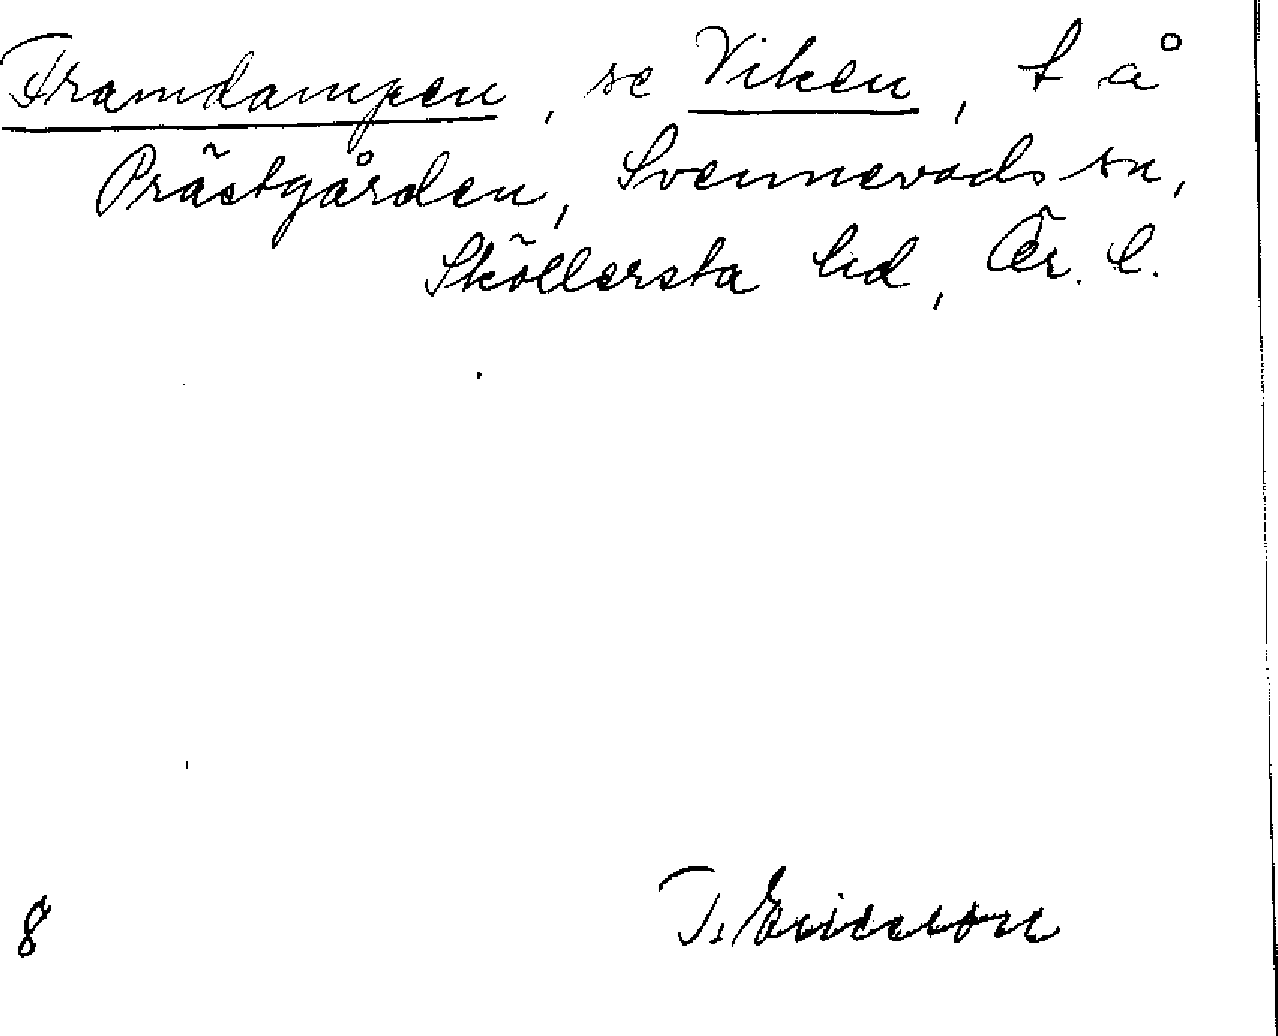 Framdampen, se Viken, t å
Prästgården, Svennevads sn,
Sköllersta hd, Ör. l.
8
T. Ericsson